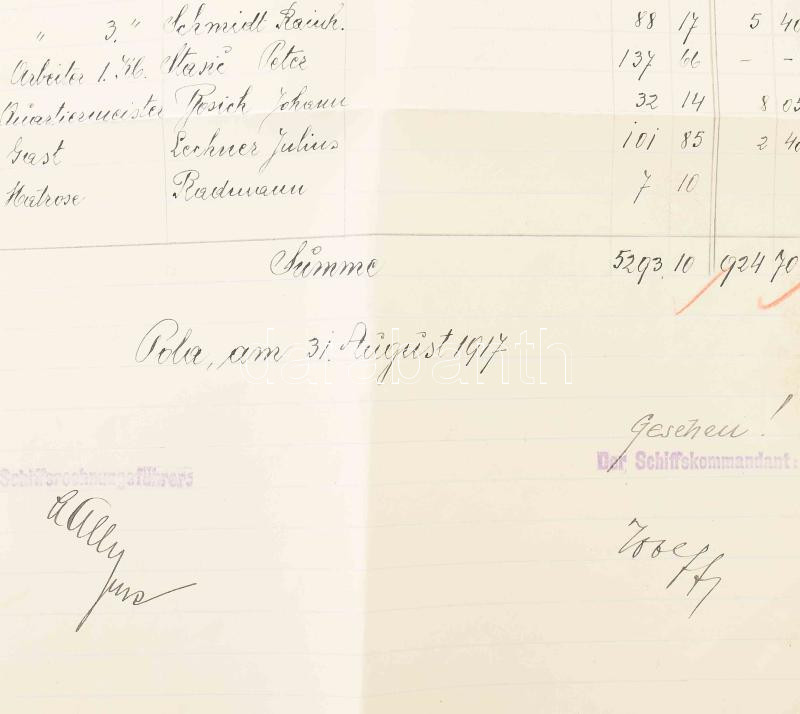 " 3. " Schmidt Rainh. 88 17 5 40
Arbeiter 1. Kl. Stasić Peter 137 66 - -
Quartiermeister Rosich Johann 32 14 8 05
Gast Lechner Julius 101 85 2 40
Matrose Radmann 7 10
Summe 5293 10 924 70
Pola, am 31. August 1917
Gesehen!
Schiffsrechnungsführer:
Der Schiffskommandant:
darabanth